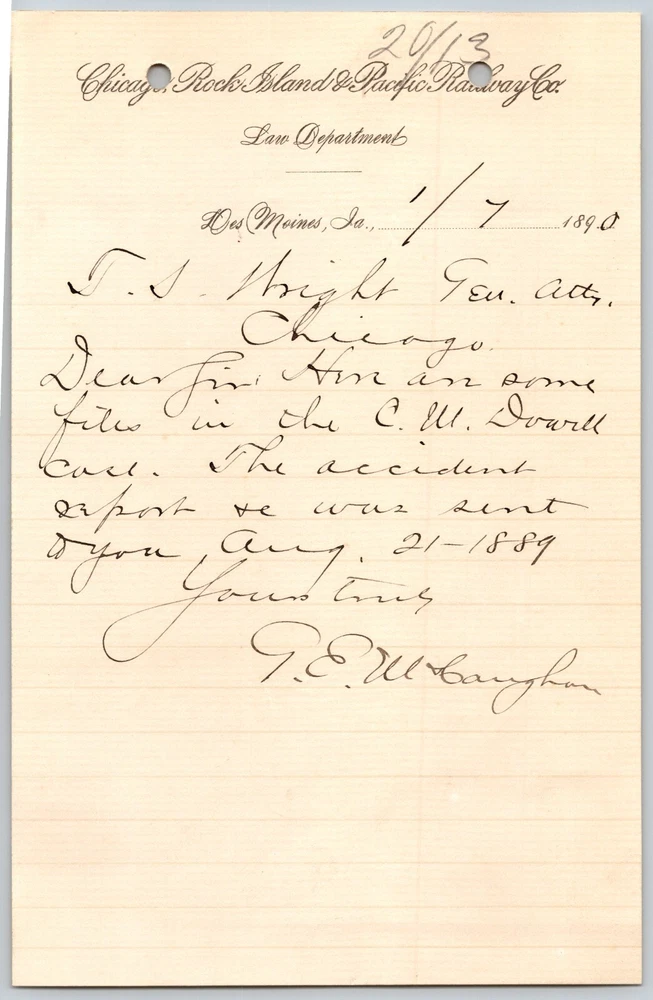 20/13
Chicago, Rock Island & Pacific Railway Co.
Law Department
Des Moines, Ia., 1/7 1890
T. S. Wright Gen. Atty.
Chicago.
Dear Sir: Here are some
files in the C. M. Dowell
case. The accident
report &c was sent
to you Aug. 21-1889
Yours truly
G. E. McCaughan